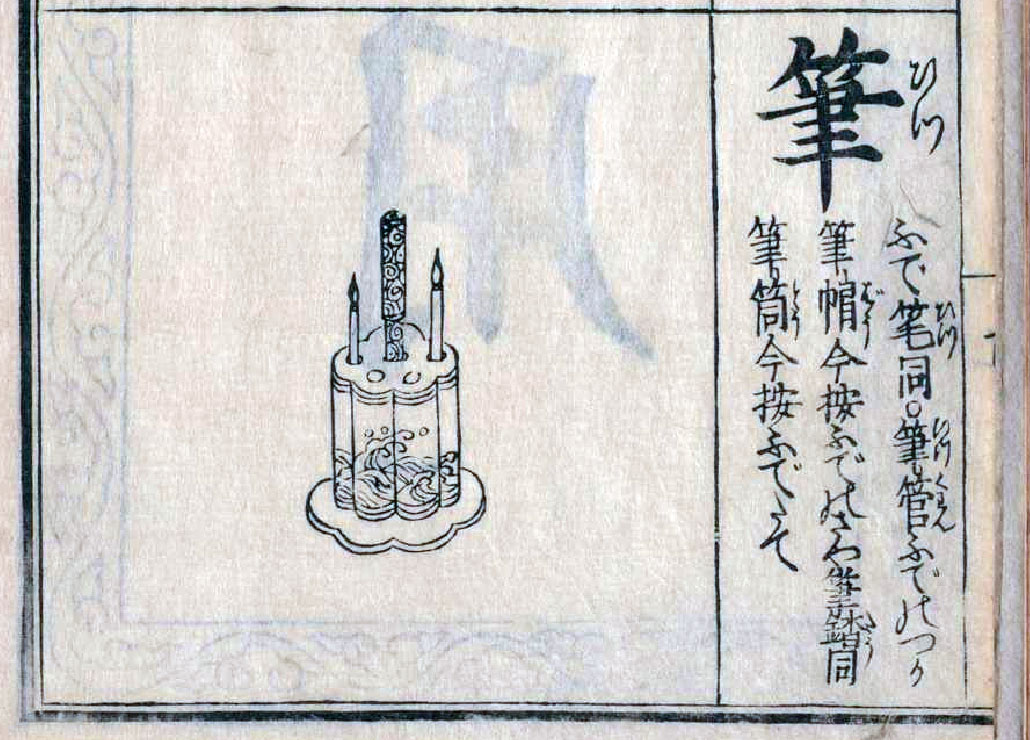 筆
ひつ
ふで笔同。筆管ふでのつか
ひつ
ひつくわん
筆帽今按ふでのさや筆鞱同
ばう
たう
筆筒今按ふでたて
とう